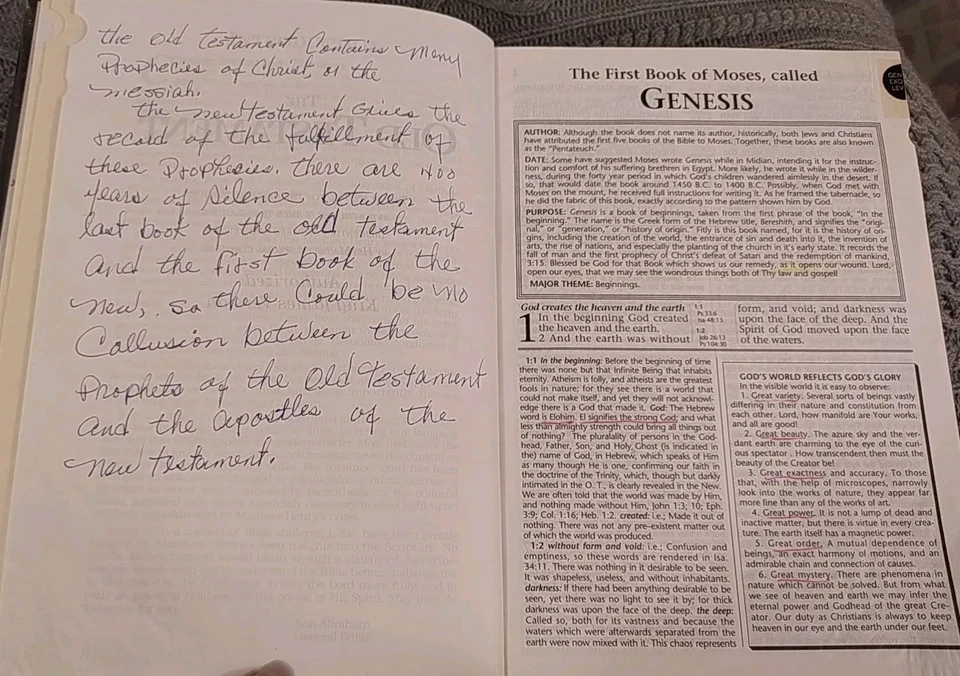 the Old testament Contains many
Prophecies of Christ, or the
messiah.
the new testament Gives the
record of the fulfillment of
these Prophesies. there are 400
years of Silence between the
last book of the old testament
And the first book of the
new, so there Could be no
Callusion between the
Prophets of the Old Testament
and the Apostles of the
new testament.
The First Book of Moses, called
GENESIS
GEN
EXO
LEV
AUTHOR: Although the book does not name its author, historically, both Jews and Christians
have attributed the first five books of the Bible to Moses. Together, these books are also known
as the "Pentateuch."
DATE: Some have suggested Moses wrote Genesis while in Midian, intending it for the instruc-
tion and comfort of his suffering brethren in Egypt. More likely, he wrote it while in the wilder-
ness, during the forty year period in which God's children wandered aimlessly in the desert. If
so, that would date the book around 1450 B.C. to 1400 B.C. Possibly, when God met with
Moses on the mount, he received full instructions for writing it. As he framed the tabernacle, so
he did the fabric of this book, exactly according to the pattern shown him by God.
PURPOSE: Genesis is a book of beginnings, taken from the first phrase of the book, "In the
beginning." The name is the Greek form of the Hebrew title, Bereshith, and signifies the "origi-
nal," or "generation," or "history of origin." Fitly is this book named, for it is the history of ori-
gins, including the creation of the world, the entrance of sin and death into it, the invention of
arts, the rise of nations, and especially the planting of the church in it's early state. It records the
fall of man and the first prophecy of Christ's defeat of Satan and the redemption of mankind,
3:15. Blessed be God for that Book which shows us our remedy, as it opens our wound. Lord,
open our eyes, that we may see the wondrous things both of Thy law and gospel!
MAJOR THEME: Beginnings.
God creates the heaven and the earth
1 In the beginning God created
the heaven and the earth.
2 And the earth was without
1:1
Ps 33:6
Isa 48:13
1:2
Job 26:13
Ps 104:30
form, and void; and darkness was
upon the face of the deep. And the
Spirit of God moved upon the face
of the waters.
1:1 In the beginning: Before the beginning of time
there was none but that Infinite Being that inhabits
eternity. Atheism is folly, and atheists are the greatest
fools in nature; for they see there is a world that
could not make itself, and yet they will not acknowl-
edge there is a God that made it. God: The Hebrew
word is Elohim. El signifies the strong God; and what
less than almighty strength could bring all things out
of nothing? The plurality of persons in the God-
head, Father, Son, and Holy Ghost (is indicated in
the) name of God, in Hebrew, which speaks of Him
as many though He is one, confirming our faith in
the doctrine of the Trinity, which, though but darkly
intimated in the O. T., is clearly revealed in the New.
We are often told that the world was made by Him,
and nothing made without Him, John 1:3; 10; Eph.
3:9; Col. 1:16; Heb. 1:2. created: i.e.; Made it out of
nothing. There was not any pre-existent matter out
of which the world was produced.
1:2 without form and void: i.e.; Confusion and
emptiness, so these words are rendered in Isa.
34:11. There was nothing in it desirable to be seen.
It was shapeless, useless, and without inhabitants.
darkness: If there had been anything desirable to be
seen, yet there was no light to see it by; for thick
darkness was upon the face of the deep. the deep:
Called so, both for its vastness and because the
waters which were afterwards separated from the
earth were now mixed with it. This chaos represents
GOD'S WORLD REFLECTS GOD'S GLORY
In the visible world it is easy to observe:
1. Great variety. Several sorts of beings vastly
differing in their nature and constitution from
each other. Lord, how manifold are Your works,
and all are good!
2. Great beauty. The azure sky and the ver-
dant earth are charming to the eye of the curi-
ous spectator . How transcendent then must the
beauty of the Creator be!
3. Great exactness and accuracy. To those
that, with the help of microscopes, narrowly
look into the works of nature, they appear far
more fine than any of the works of art.
4. Great power. It is not a lump of dead and
inactive matter, but there is virtue in every crea-
ture. The earth itself has a magnetic power.
5. Great order. A mutual dependence of
beings, an exact harmony of motions, and an
admirable chain and connection of causes.
6. Great mystery. There are phenomena in
nature which cannot be solved. But from what
we see of heaven and earth we may infer the
eternal power and Godhead of the great Cre-
ator. Our duty as Christians is always to keep
heaven in our eye and the earth under our feet.
Ken Abraham
General Editor